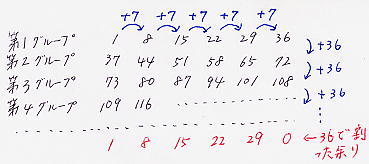 +7 +7 +7 +7 +7
第1グループ 1 8 15 22 29 36
+36
第2グループ 37 44 51 58 65 72
+36
第3グループ 73 80 87 94 101 108
+36
第4グループ 109 116 ‥‥‥‥‥‥
1 8 15 22 29 0 ←36で割
った余り